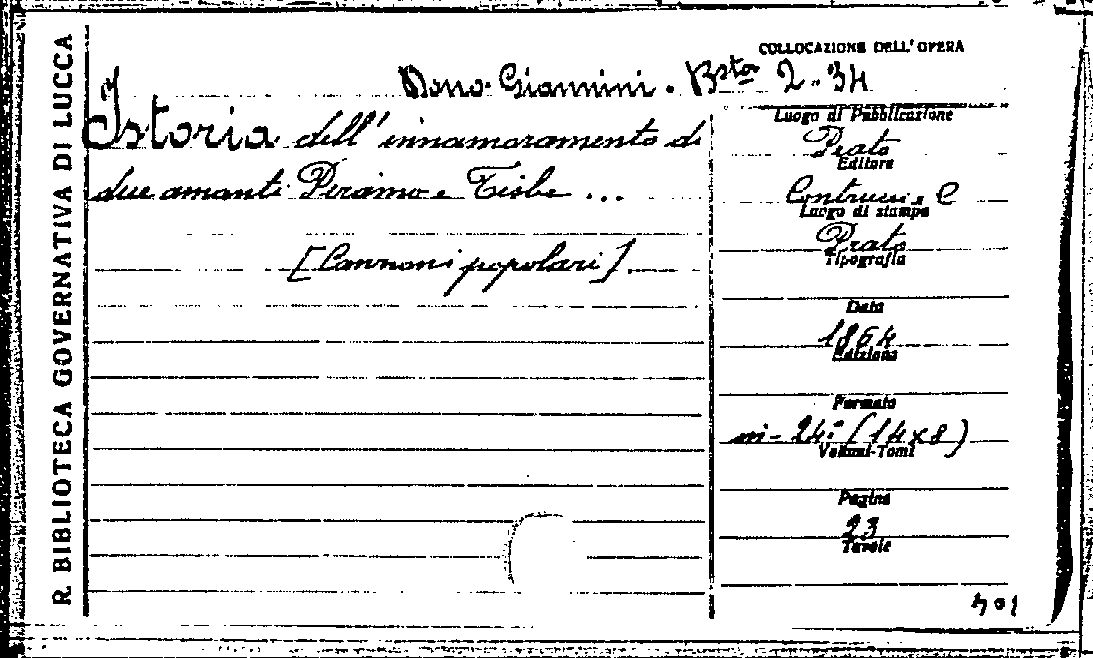 R. BIBLIOTECA GOVERNATIVA DI LUCCA
COLLOCAZIONE DELL'OPERA
Dono Giannini. Bsta 2-34
Istoria dell'innamoramento di
due amanti Piramo e Tisbe ...
[Canzoni popolari]
Luogo di Pubblicazione
Prato
Editore
Contrucci e C
Luogo di stampa
Prato
Tipografia
Data
1864
Edizione
Formato
in-24° (14x8)
Volumi-Tomi
Pagine
23
Tavole